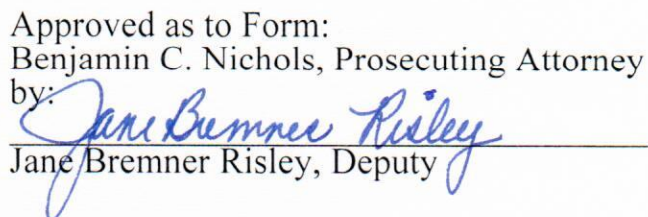 Approved as to Form:
Benjamin C. Nichols, Prosecuting Attorney
by:
Jane Bremner Risley
Jane Bremner Risley, Deputy